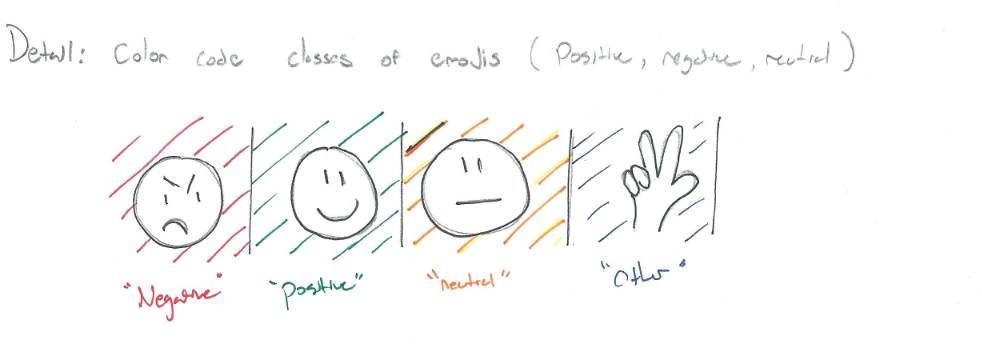 Detail: Color code classes of emojis (Positive, negative, neutral)
"Negative" "Positive" "neutral" "Other"